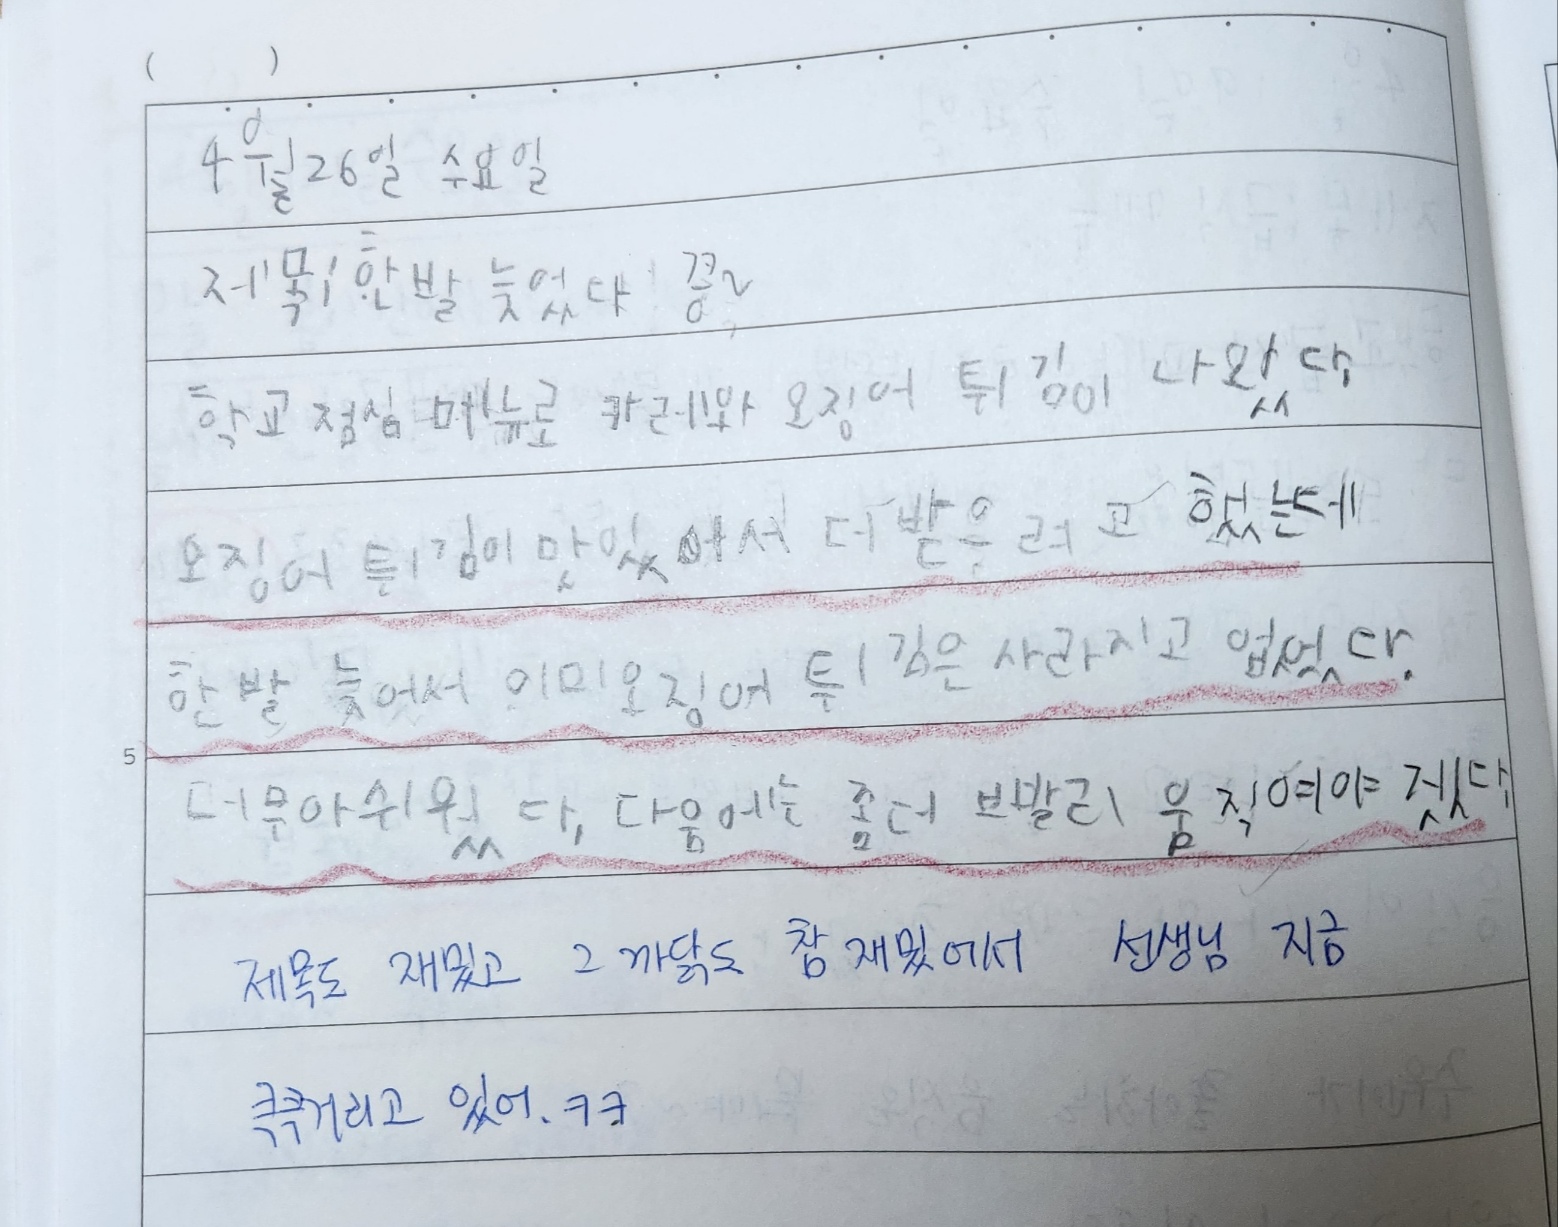 ( )
4월26일 수요일
제목! 한발 늦었다! 꽁~
학교 점심 메뉴로 카레와 오징어 튀김이 나왔다.
오징어 튀김이 맛있어서 더 받으려고 했는데
한발 늦어서 이미 오징어 튀김은 사라지고 없었다.
너무 아쉬웠다. 다음에는 좀더 브발리 움직여야 겠다.
5
제목도 재밌고 그 까닭도 참 재밌어서 선생님 지금
큭큭거리고 있어. ㅋㅋ